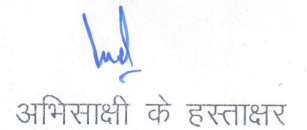 अभिसाक्षी के हस्ताक्षर